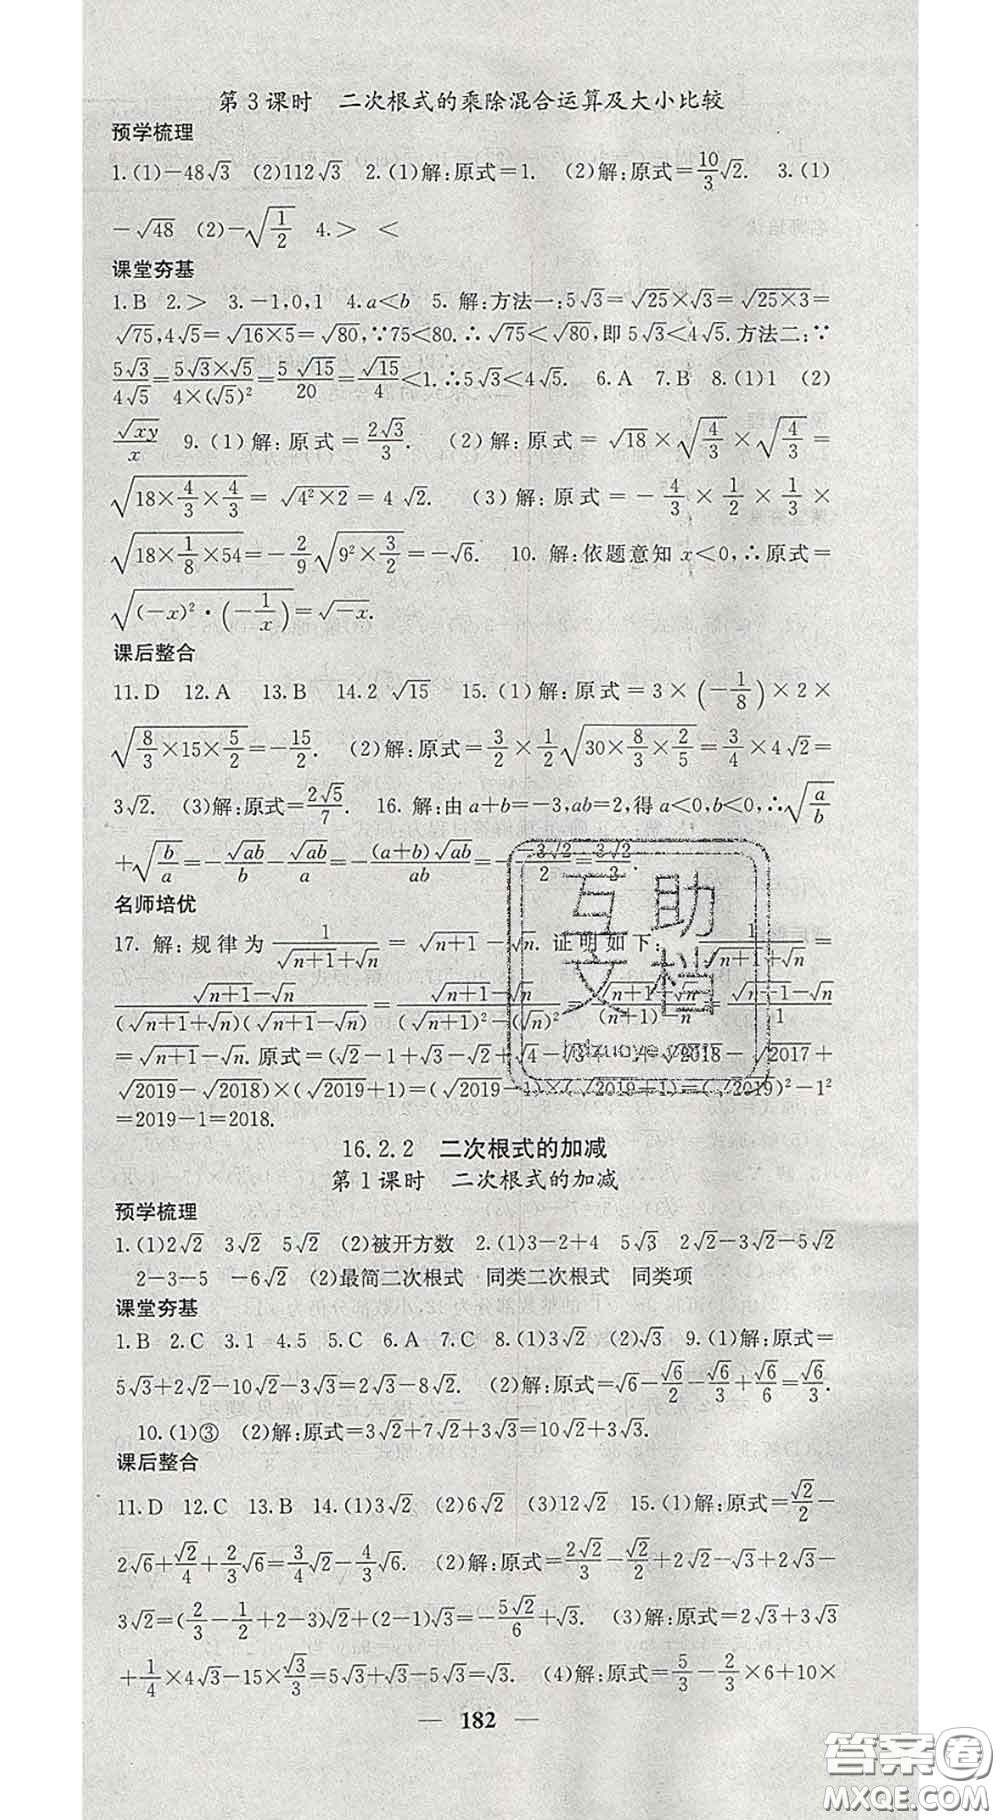 第3课时　二次根式的乘除混合运算及大小比较
预学梳理
1.(1)-48√3　(2)112√3　2.(1)解:原式=1.　(2)解:原式=10/3√2.　3.(1)
-√48　(2)-√(1/2)　4.>　<
课堂夯基
1.B　2.>　3.-1,0,1　4.a<b　5. 解:方法一:5√3=√25×√3=√(25×3)=
√75,4√5=√(16×5)=√80,∵75<80.∴√75<√80,即5√3<4√5.方法二:∵
5√3/4√5=(5√3×√5)/(4×(√5)²)=5√15/20=√15/4<1.∴5√3<4√5.　6.A　7.B　8.(1)1　(2)
√xy/x　9.(1)解:原式=2√3/3.　(2)解:原式=√18×√(4/3)×√(4/3)=
√(18×4/3×4/3)=√(4²×2)=4√2.　(3)解:原式=-4/3×1/2×1/3×
√(18×1/8×54)=-2/9√(9²×3/2)=-√6.　10. 解:依题意知x<0,∴原式=
√((-x)²·(-1/x))=√-x.
课后整合
11.D　12.A　13.B　14.2√15　15.(1)解:原式=3×(-1/8)×2×
√(8/3×15×5/2)=-15/2.　(2)解:原式=3/2×1/2√(30×8/3×2/5)=3/4×4√2=
3√2.　(3)解:原式=2√5/7.　16. 解:由a+b=-3,ab=2,得a<0,b<0,∴√(a/b)
+√(b/a)=-√ab/b-√ab/a=-(a+b)√ab/ab=-(-3√2)/2=3√2/3.
名师培优
17. 解:规律为1/(√(n+1)+√n)=√(n+1)-√n. 证明如下:1/(√(n+1)+√n)
(√(n+1)-√n)/((√(n+1)+√n)(√(n+1)-√n))=(√(n+1)-√n)/((√(n+1))²-(√n)²)=(√(n+1)-√n)/((n+1)-n)=(√(n+1)-√n)/1
=√(n+1)-√n. 原式=(√2-1+√3-√2+√4-√3+…+√2018-√2017+
√2019-√2018)×(√2019+1)=(√2019-1)×(√2019+1)=(√2019)²-1²
=2019-1=2018.
16.2.2　二次根式的加减
第1课时　二次根式的加减
预学梳理
1.(1)2√2　3√2　5√2　(2)被开方数　2.(1)3-2+4　5√3　2√2-3√2-5√2
2-3-5　-6√2　(2)最简二次根式　同类二次根式　同类项
课堂夯基
1.B　2.C　3.1　4.5　5.C　6.A　7.C　8.(1)3√2　(2)√3　9.(1)解:原式=
5√3+2√2-10√2-3√3=2√3-8√2.　(2)解:原式=√6-√6/2-√6/3+√6/6=√6/3.
10.(1)③　(2)解:原式=3√2+7√2+3√3=10√2+3√3.
课后整合
11.D　12.C　13.B　14.(1)3√2　(2)6√2　(3)12√2　15.(1)解:原式=√2/2-
2√6+√2/4+2/3√6=3/4√2-4/3√6.　(2)解:原式=2√2/3-√2/2+2√2-√3+2√3-
3√2=(2/3-1/2+2-3)√2+(2-1)√3=-5√2/6+√3.　(3)解:原式=2√3+3√3
+1/4×4√3-15×√3/3=5√3+√3-5√3=√3.　(4)解:原式=5/3-2/3×6+10×
— 182 —
互助
文档
答案圈
MXQE.COM